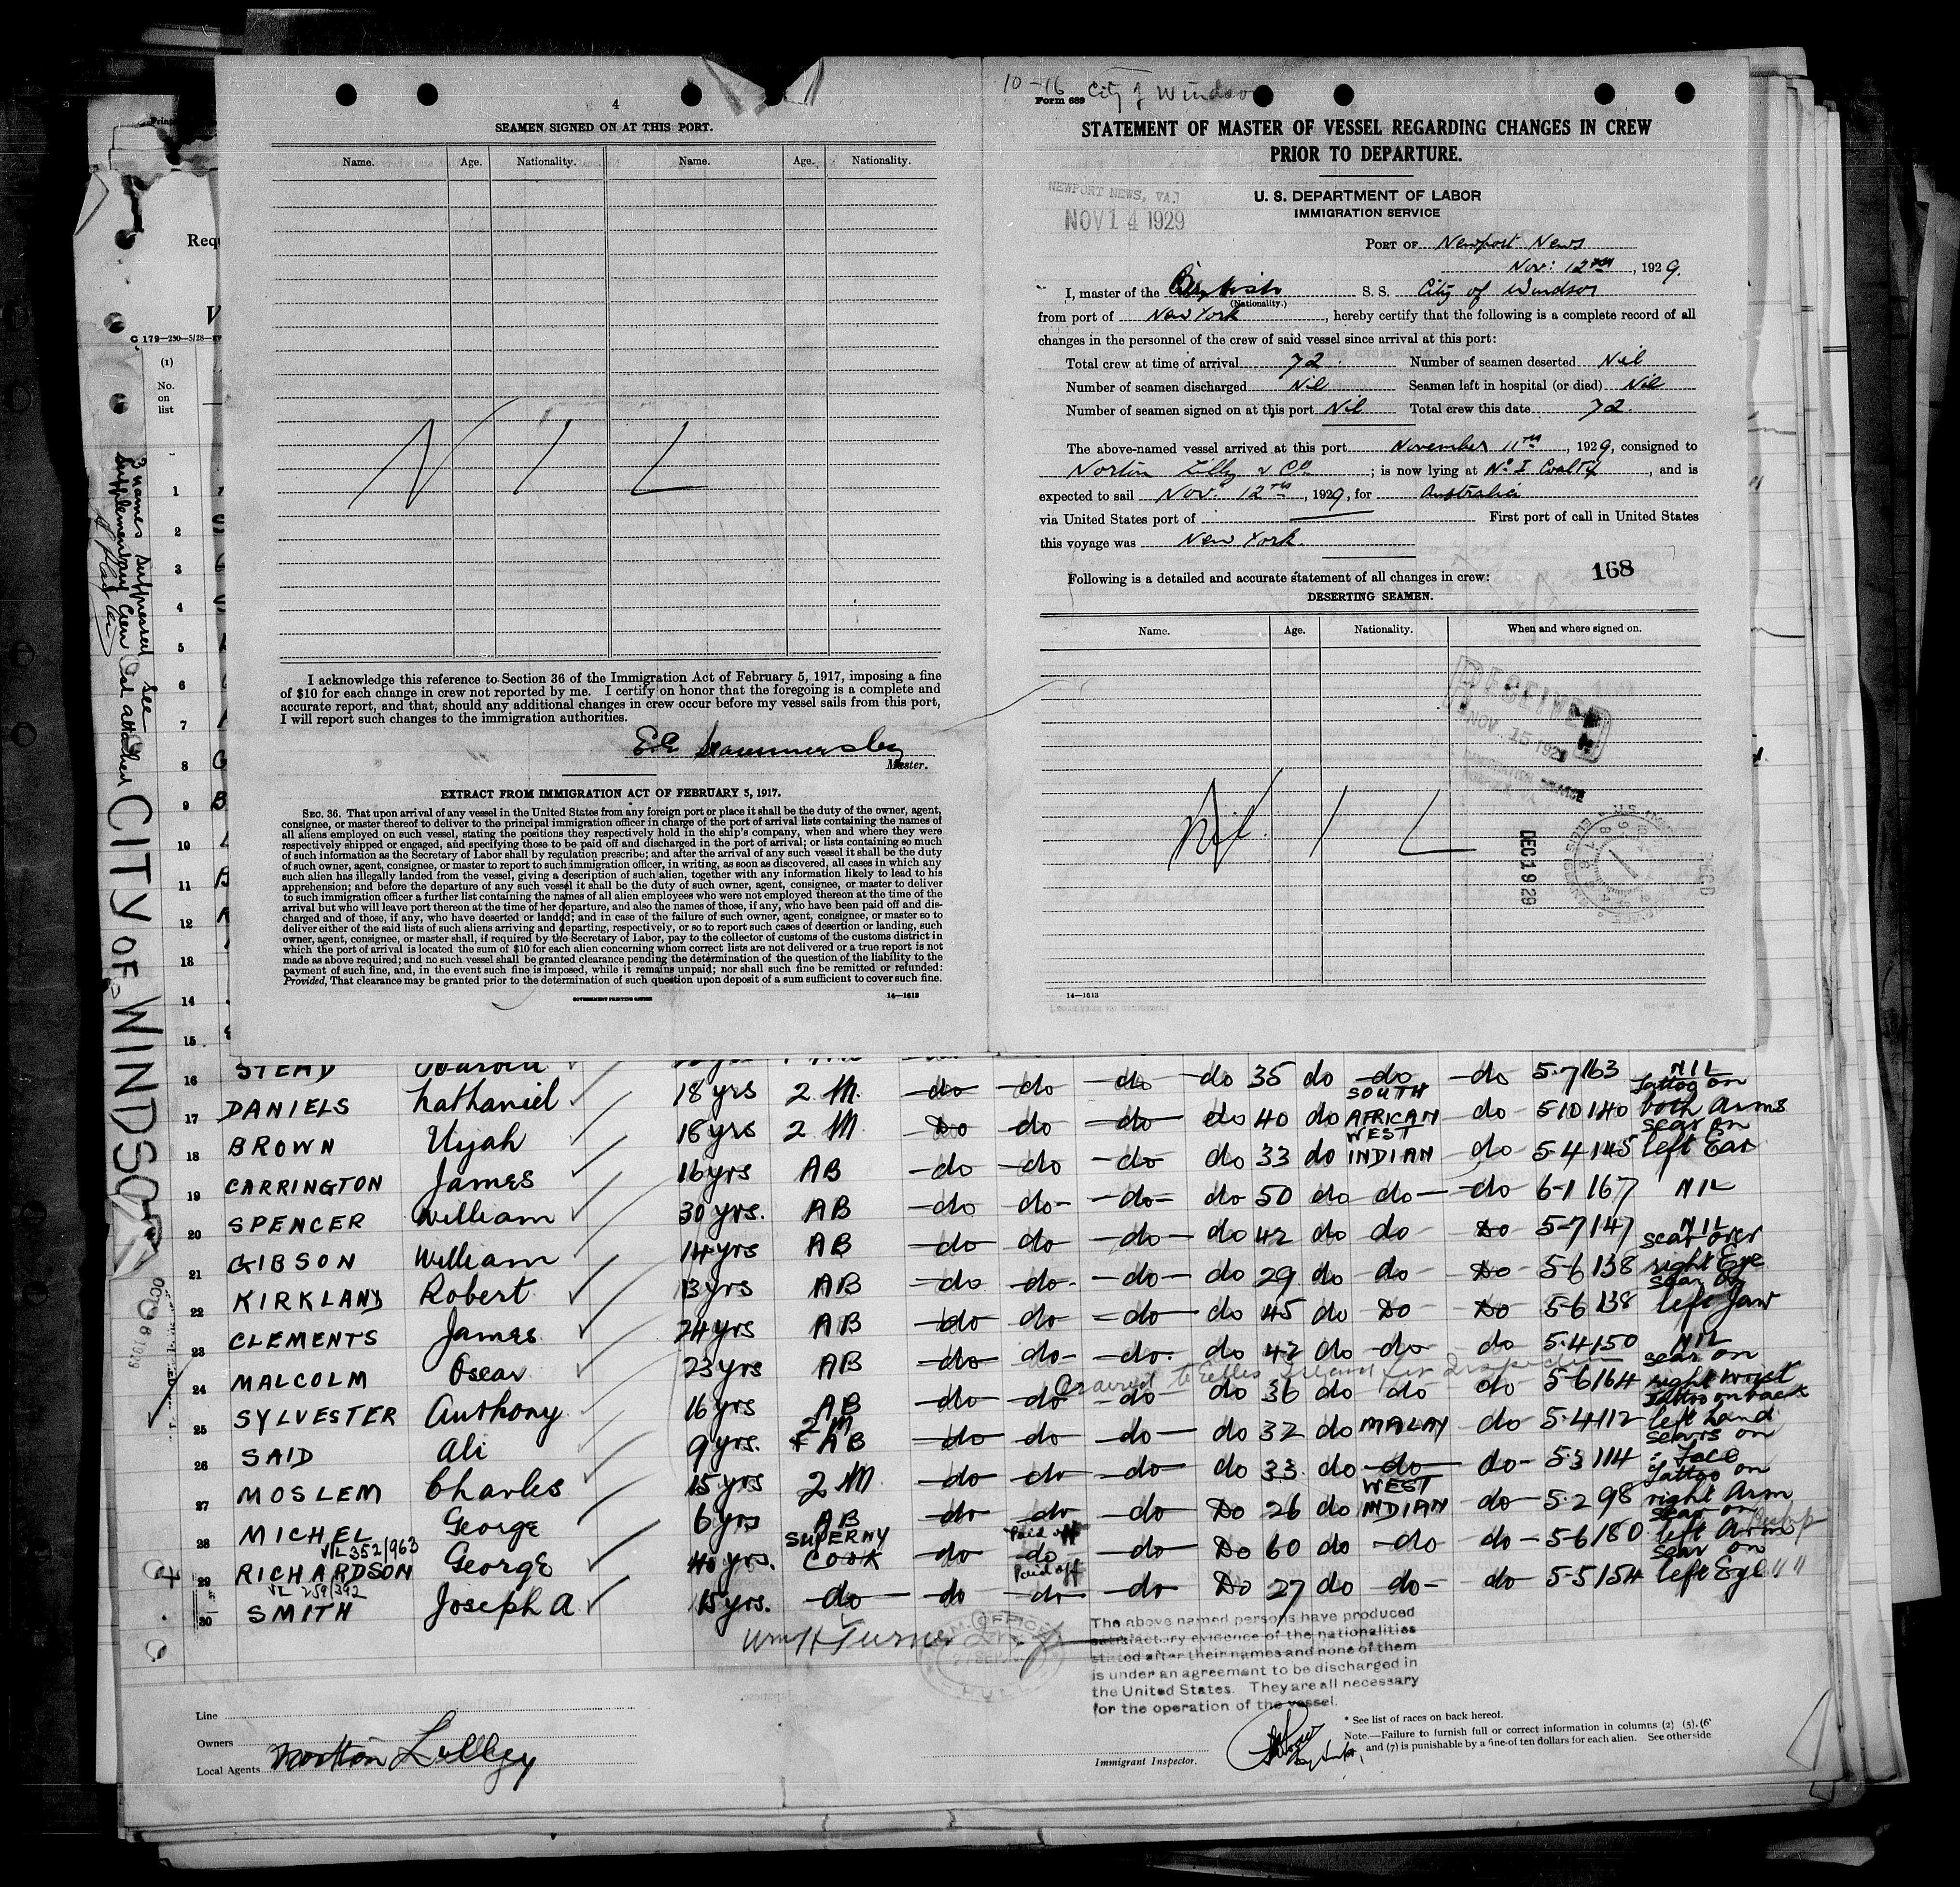 4
SEAMEN SIGNED ON AT THIS PORT.
Name. Age. Nationality. Name. Age. Nationality.
N I L
I acknowledge this reference to Section 36 of the Immigration Act of February 5, 1917, imposing a fine
of $10 for each change in crew not reported by me. I certify on honor that the foregoing is a complete and
accurate report, and that, should any additional changes in crew occur before my vessel sails from this port,
I will report such changes to the immigration authorities.
Master.
EXTRACT FROM IMMIGRATION ACT OF FEBRUARY 5, 1917.
SEC. 36. That upon arrival of any vessel in the United States from any foreign port or place it shall be the duty of the owner, agent,
consignee, or master thereof to deliver to the principal immigration officer in charge of the port of arrival lists containing the names of
all aliens employed on such vessel, stating the positions they respectively hold in the ship's company, when and where they were
respectively shipped or engaged, and specifying those to be paid off and discharged in the port of arrival; or lists containing so much
of such information as the Secretary of Labor shall by regulation prescribe; and after the arrival of any such vessel it shall be the duty
of such owner, agent, consignee, or master to report to such immigration officer, in writing, as soon as discovered, all cases in which any
such alien has illegally landed from the vessel, giving a description of such alien, together with any information likely to lead to his
apprehension; and before the departure of any such vessel it shall be the duty of such owner, agent, consignee, or master to deliver
to such immigration officer a further list containing the names of all alien employees who were not employed thereon at the time of the
arrival but who will leave port thereon at the time of her departure, and also the names of those, if any, who have been paid off and dis-
charged and of those, if any, who have deserted or landed; and in case of the failure of such owner, agent, consignee, or master so to
deliver either of the said lists of such aliens arriving and departing, respectively, or so to report such cases of desertion or landing, such
owner, agent, consignee, or master shall, if required by the Secretary of Labor, pay to the collector of customs of the customs district in
which the port of arrival is located the sum of $10 for each alien concerning whom correct lists are not delivered or a true report is not
made as above required; and no such vessel shall be granted clearance pending the determination of the question of the liability to the
payment of such fine, and, in the event such fine is imposed, while it remains unpaid; nor shall such fine be remitted or refunded:
Provided, That clearance may be granted prior to the determination of such question upon deposit of a sum sufficient to cover such fine.
GOVERNMENT PRINTING OFFICE 14—1613
10-16 City of Windsor
Form 689
STATEMENT OF MASTER OF VESSEL REGARDING CHANGES IN CREW
PRIOR TO DEPARTURE.
U. S. DEPARTMENT OF LABOR
IMMIGRATION SERVICE
NEWPORT NEWS, VA.
NOV 14 1929
PORT OF Newport News
Nov: 12th, 1929.
I, master of the British S. S. City of Windsor
(Nationality.)
from port of New York, hereby certify that the following is a complete record of all
changes in the personnel of the crew of said vessel since arrival at this port:
Total crew at time of arrival 72. Number of seamen deserted Nil
Number of seamen discharged Nil Seamen left in hospital (or died) Nil
Number of seamen signed on at this port Nil Total crew this date 72.
The above-named vessel arrived at this port November 11th, 1929, consigned to
Norton Lilly & Co.; is now lying at No I, and is
expected to sail Nov. 12th, 1929, for Australia
via United States port of First port of call in United States
this voyage was New York.
Following is a detailed and accurate statement of all changes in crew: 168
DESERTING SEAMEN.
Name. Age. Nationality. When and where signed on.
RECEIVED
NOV 15 1929
Nil I L
DEC 19 29
14—1613
(1)
No.
on
list
3 names suppressed see
CITY OF WINDSOR
1
2
3
4
5
6
7
8
9
10
11
12
13
14
15
16 STEAD 35 do do do 5-7 163 NIL
17 DANIELS Nathaniel 18 yrs 2 M. do do do do 40 do SOUTH AFRICAN do 5-10 140 Tattoo on both Arms
18 BROWN 18 yrs 2 M Do do do do 33 do WEST INDIAN do 5-4 145 scar on left Ear
19 CARRINGTON James 16 yrs AB do do do do 50 do do do 6-1 167 NIL
20 SPENCER William 30 yrs. AB do do do do 42 do do Do 5-7 147 NIL
21 GIBSON William 14 yrs AB do do do do 29 do do Do 5-6 138 scar over right Eye
22 KIRKLAND Robert 13 yrs AB do do do do 45 do Do Do 5-6 138 scar on left Jaw
23 CLEMENTS James 24 yrs AB do do do do 42 do do do 5-4 150 NIL
24 MALCOLM Oscar 23 yrs AB do do do do 36 do do do 5-6 164 scar on right wrist
25 SYLVESTER Anthony 16 yrs AB do do do do 32 do MALAY do 5-4 112 Tattoo on back left hand
26 SAID Ali 9 yrs. 2 M AB do do do do 33 do do do 5-3 114 scars on Face
27 MOSLEM Charles 15 yrs 2 M do do do Do 26 do WEST INDIAN do 5-2 98 Tattoo on right Arm
28 MICHEL George 6 yrs AB do do do Do 60 do do do 5-6 180 scar on left Arm
29 V/L 352/963 RICHARDSON George 40 yrs. SUPERNY COOK do Paid off do do Do 27 do do do 5-5 154 scar on left Eye " "
30 V/L 259/392 SMITH Joseph A 15 yrs. do do Paid off do do
Wm H Turner
The above named persons have produced
satisfactory evidence of the nationalities
stated after their names and none of them
is under an agreement to be discharged in
the United States. They are all necessary
for the operation of the vessel.
Line
Owners
Local Agents Norton Lilley
Immigrant Inspector.
* See list of races on back hereof.
Note.—Failure to furnish full or correct information in columns (2) (5) (6
and (7) is punishable by a fine of ten dollars for each alien. See other side